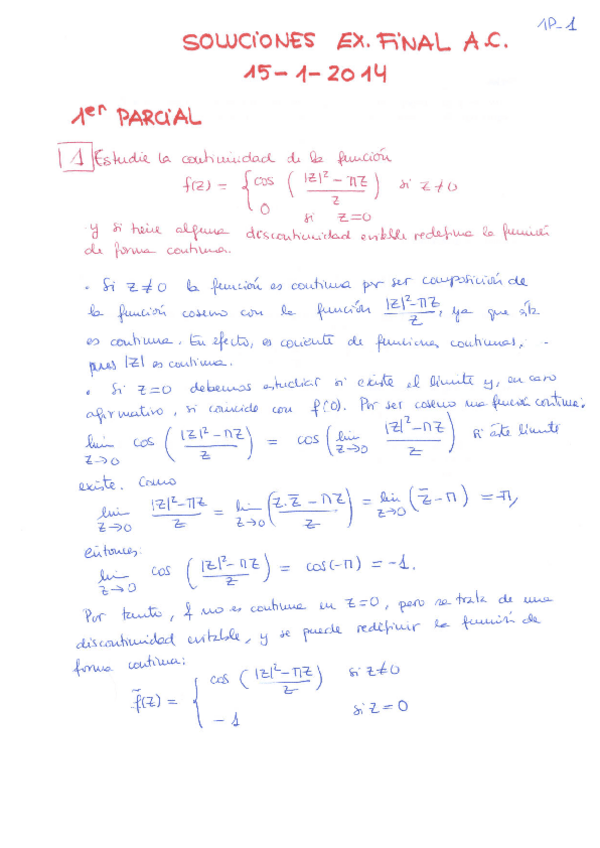 1P-1
SOLUCIONES EX. FINAL A.C.
15-1-2014
1er PARCIAL
1 Estudie la continuidad de la función
f(z) = { cos ( |z|² - πz / z ) si z ≠ 0
0 si z = 0
y si tiene alguna discontinuidad evitable redefina la función
de forma continua.
• Si z ≠ 0 la función es continua por ser composición de
la función coseno con la función |z|² - πz / z, ya que ésta
es continua. En efecto, es cociente de funciones continuas,
pues |z| es continua.
• Si z = 0 debemos estudiar si existe el límite y, en caso
afirmativo, si coincide con f(0). Por ser coseno una función continua:
lim z→0 cos ( |z|² - πz / z ) = cos ( lim z→0 |z|² - πz / z ) si éste límite
existe. Como
lim z→0 |z|² - πz / z = lim z→0 ( z·z̄ - πz / z ) = lim z→0 ( z̄ - π ) = -π,
entonces:
lim z→0 cos ( |z|² - πz / z ) = cos(-π) = -1.
Por tanto, f no es continua en z = 0, pero se trata de una
discontinuidad evitable, y se puede redefinir la función de
forma continua:
f̃(z) = { cos ( |z|² - πz / z ) si z ≠ 0
-1 si z = 0